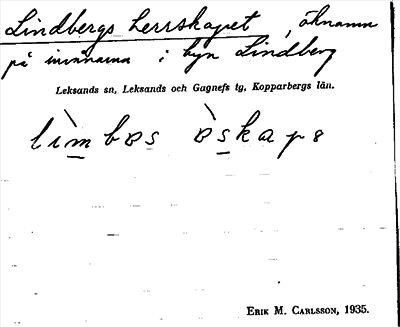 Lindbergs herrskapet, öknamn
på invånarna i byn Lindberg
Leksands sn, Leksands och Gagnefs tg, Kopparbergs län.
Erik M. Carlsson, 1935.